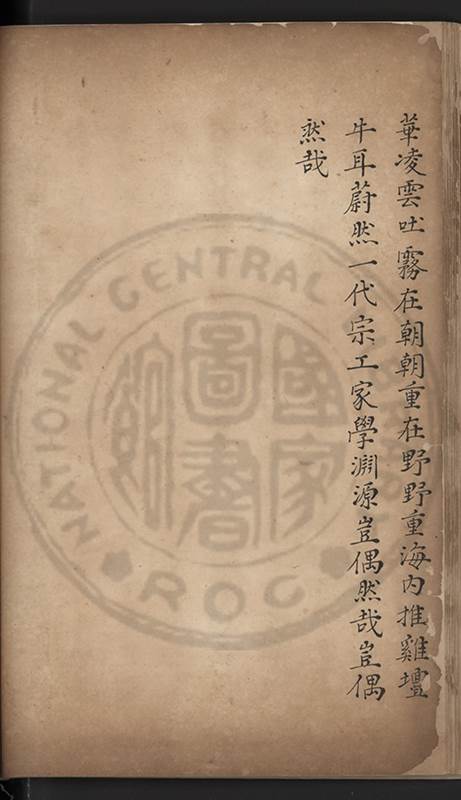 華凌雲吐霧在朝朝重在野野重海內推雞壇
牛耳蔚然一代宗工家學淵源豈偶然哉豈偶
然哉
NATIONAL CENTRAL
國家
圖書
館
ROC